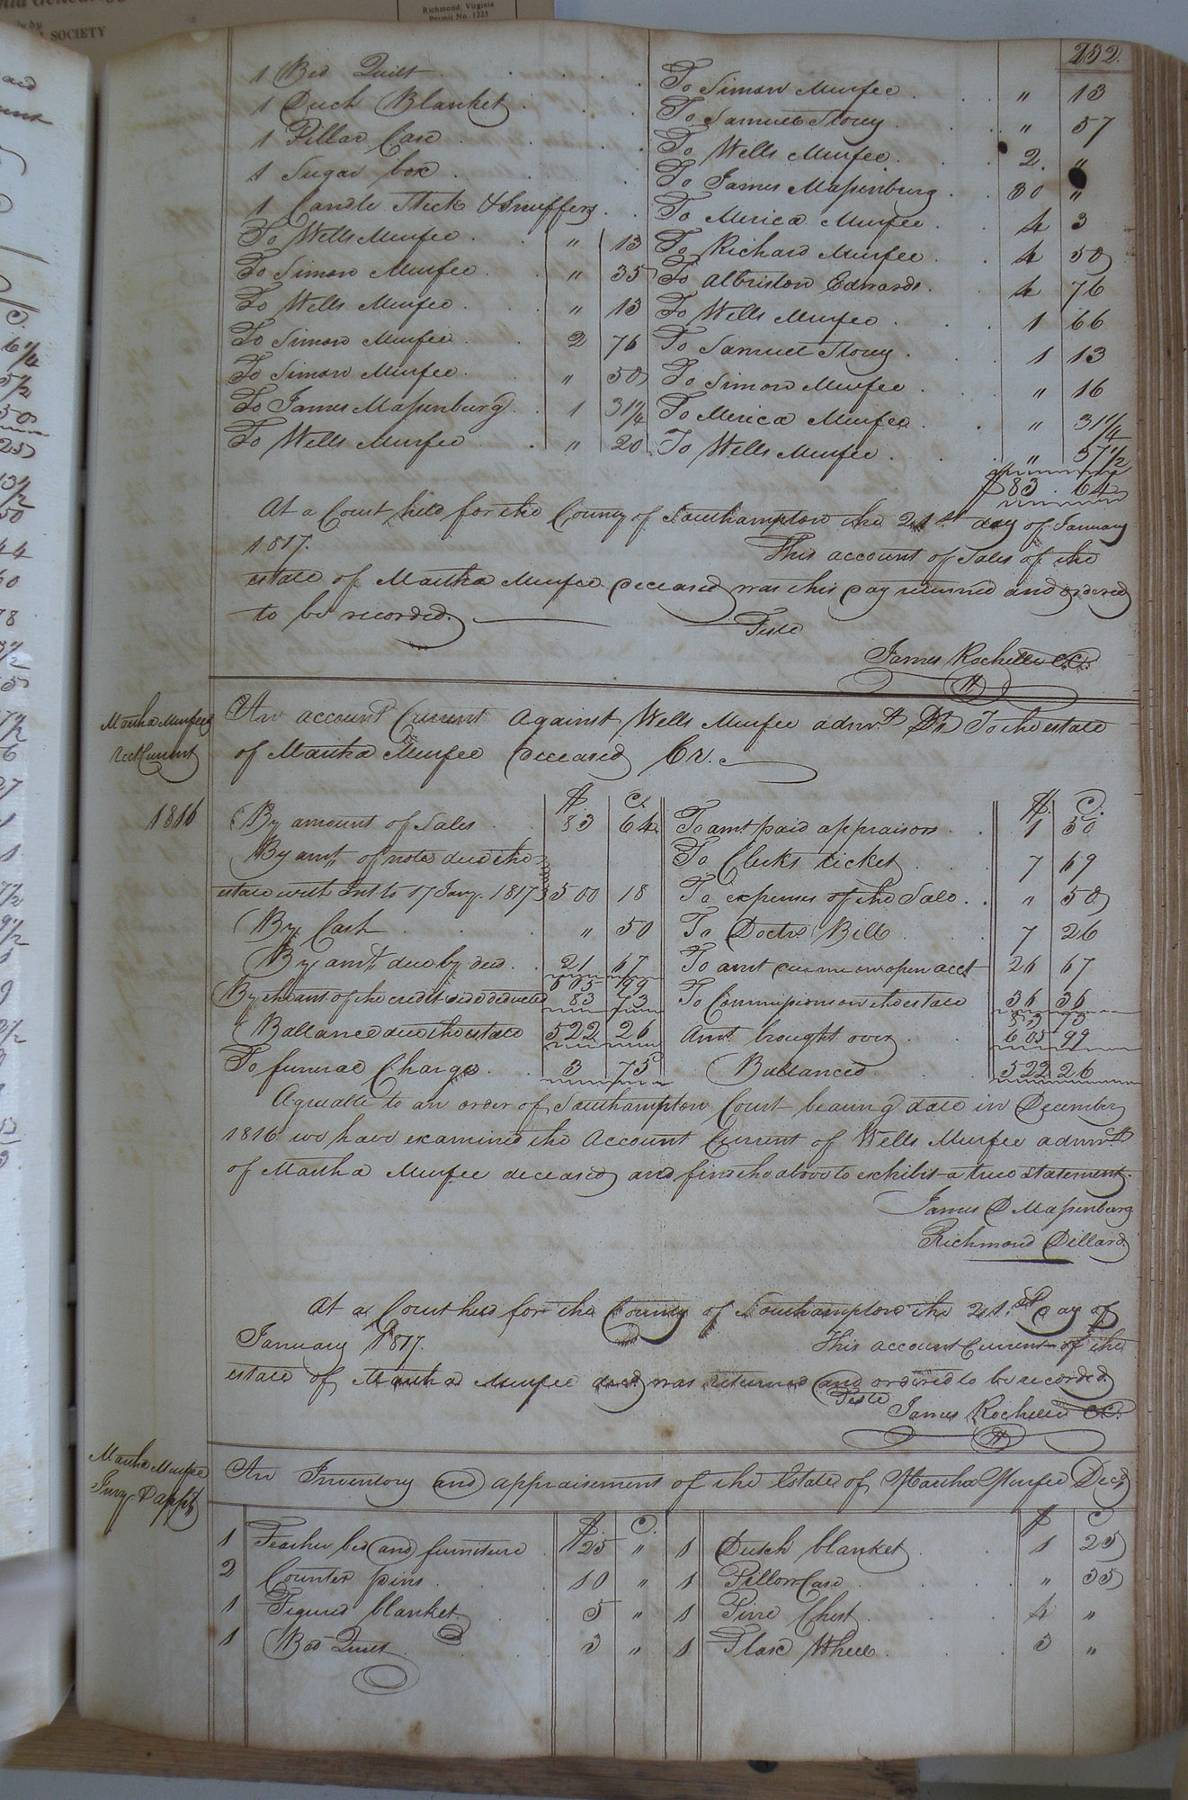 Richmond, Virginia
Permit No. 1225
SOCIETY
232.
1 Bed Quilt
1 Duch Blanket
1 Pillar Case
1 Sugar box
1 Candle Stick & Snuffers
To Wells Murfee " 13
To Simon Murfee " 35
To Wells Murfee " 13
To Simon Murfee 2 76
To Simon Murfee " 50
To James Massenburg 1 31 1/4
To Wells Murfee " 20
To Simon Murfee " 13
To Samuel Storey " 57
To Wells Murfee 2 "
To James Massenburg 30 "
To Merica Murfee 4 3
To Richard Murfee 4 50
To Albriston Edwards 4 76
To Wells Murfee 1 66
To Samuel Storey 1 13
To Simon Murfee " 16
To Merica Murfee " 31 1/4
To Wells Murfee " 57 1/2
$83.64
At a Court held for the County of Southampton the 21st day of January
1817. This account of Sales of the
estate of Martha Murfee deceased was this day returned and ordered
to be recorded. Teste
James Rochelle C.C.
Martha Murfees
Acct Current
An account Current against Wells Murfee admr. Dr. To the estate
of Martha Murfee deceased Cr.
1816
$ C.
By amount of Sales 83 64
By amt. of note due the
estate with Int. to 17 Jany. 1817 500 18
By Cash " 50
By amt. due by decd. 21 67
605 99
By the amt of the credit side deducted 83 73
Ballance due the estate 522 26
To funeral Charge 3 75
$ C.
To amt paid appraisors 1 50
To Clerks ticket 7 69
To expenses of the Sale " 50
To Doctrs Bill 7 26
To amt due me on open acct 26 67
To Commissions on the estate 36 36
Amt brought over 605 99
Ballanced 522 26
Agreeable to an order of Southampton Court bearing date in December
1816 we have examined the Account Current of Wells Murfee admr.
of Martha Murfee deceased and find the above to exhibit a true statement.
James D Massenburg
Richmond Dillard
At a Court held for the County of Southampton the 21st day of
January 1817. This account Current of the
estate of Martha Murfee decd was returned and ordered to be recorded
Teste
James Rochelle C.C.
Martha Murfee
Invy & appt
An Inventory and appraisement of the Estate of Martha Murfee Decd
$ C. $ C
1 Feather bed and furniture $25 " 1 Dutch blanket 1 25
2 Counter pins 10 " 1 Pillow Case " 35
1 Figured blanket 5 " 1 Pine Chest 4 "
1 Bed Quilt 3 " 1 Flax Wheel 3 "